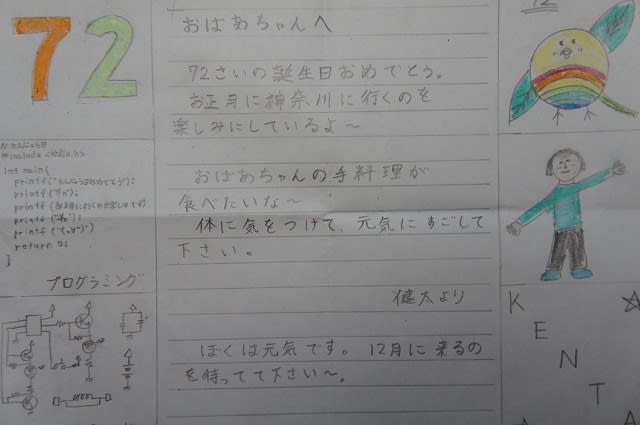 72
おばあちゃんへ
72さいの誕生日おめでとう。
お正月に神奈川に行くのを
楽しみにしているよ～
おばあちゃんの手料理が
食べたいな～
体に気をつけて、元気にすごして
下さい。
健太より
ぼくは元気です。12月に来るの
を待ってて下さい～。
#include <stdio.h>
int main{
printf("たんじょう日おめでとう");
printf("\n");
printf(
printf("\n");
printf(
return 0;
}
プログラミング
72
K
E
N
T
A